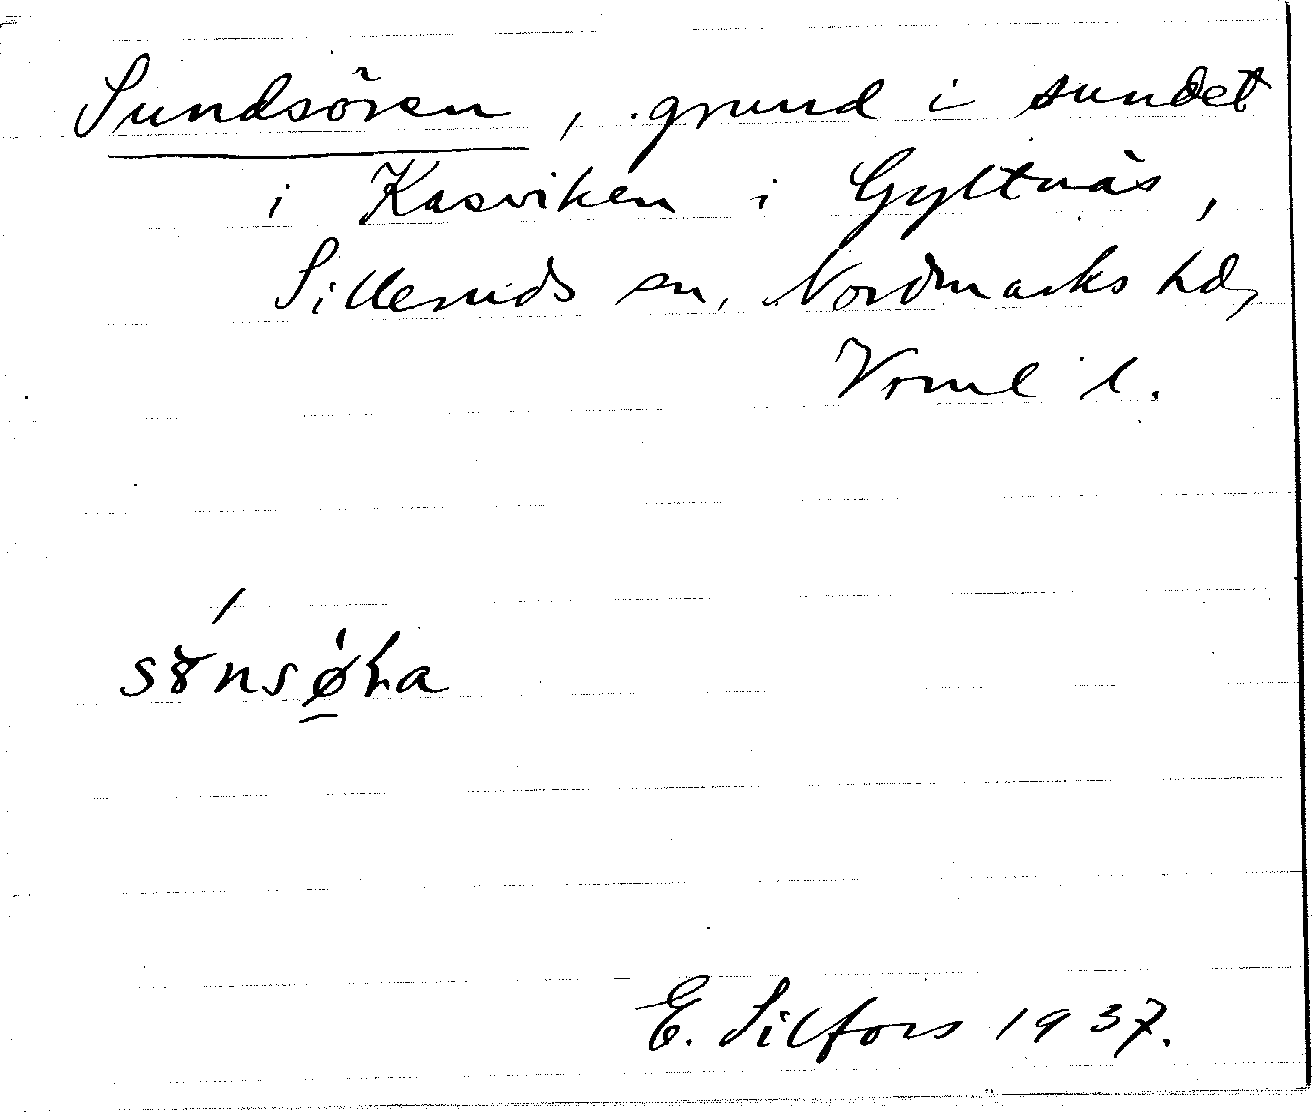 Sundsören, grund i sundet
i Kasviken i Gyltnäs,
Silleruds sn, Nordmarks hd,
Vrml. l.
E. Silfors 1937.